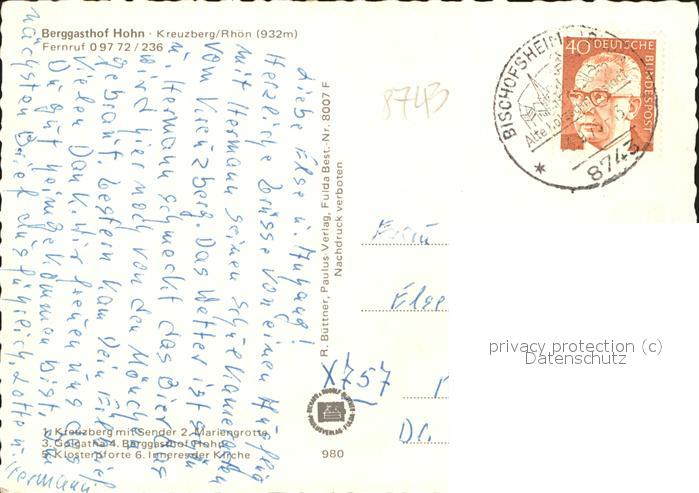 Berggasthof Hohn · Kreuzberg/Rhön (932m)
Fernruf 0 97 72 / 236
Liebe Else u. Anhang!
Herzliche Grüsse von einem Ausflug
mit Hermann seinen Schulkameraden
vom Kreuzberg. Das Wetter ist schön
u. Hermann schmeckt das Bier das
wird hier noch von den Mönchen
gebraut. Gestern kam Dein Eilbrief
Vielen Dank. Wir freuen uns das
Du gut heimgekommen bist. Im
nächsten Brief ausführlich. Lotte u.
Hermann
1. Kreuzberg mit Sender 2. Mariengrotte
3. Golgatha 4. Berggasthof Hohn
5. Klosterpforte 6. Inneres der Kirche
R. Büttner, Paulus-Verlag, Fulda Best.-Nr. 8007 F
Nachdruck verboten
980
8743
X757
40 DEUTSCHE
BUNDESPOST
BISCHOFSHEIM
8743
Frau
Else
Dr.
privacy protection (c)
Datenschutz